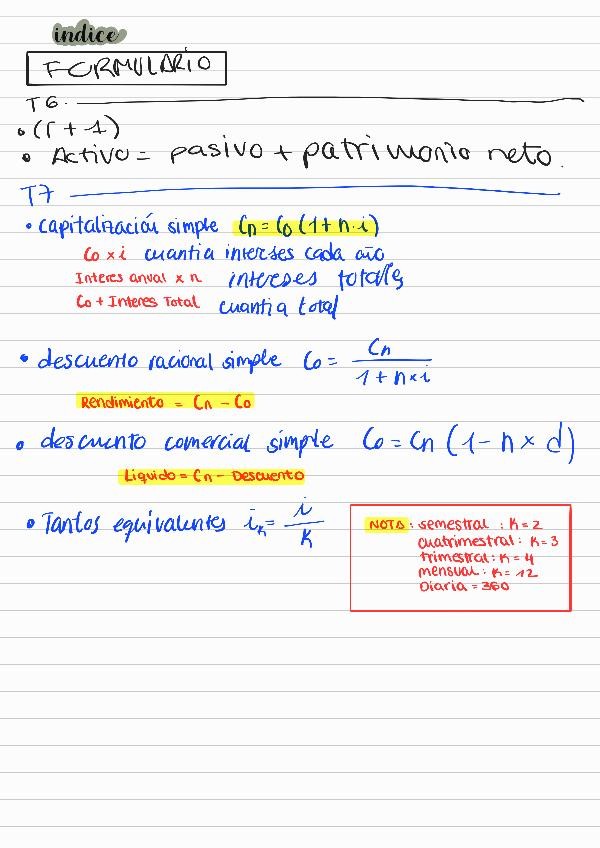 indice
FORMULARIO
T6.
• (r + 1)
• Activo = pasivo + patrimonio neto.
T7
• capitalización simple Cn = C0 (1 + n · i)
C0 × i cuantia interses cada año
Interes anual × n intereses totales
C0 + Interes Total cuantia total
• descuento racional simple C0 = Cn / 1 + n × i
Rendimiento = Cn – C0
• descuento comercial simple C0 = Cn (1 – n × d)
Liquido = Cn – Descuento
• Tantos equivalentes iK = i / K
NOTA: semestral : K = 2
cuatrimestral : K = 3
trimestral : K = 4
mensual : K = 12
Diaria = 360